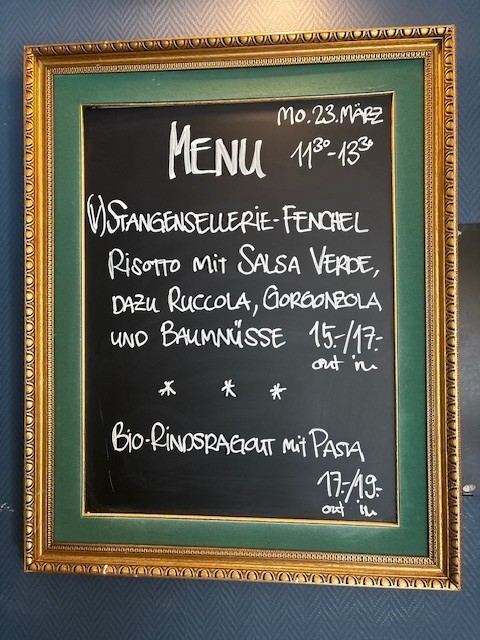 MO. 23. MÄRZ
MENU 11³⁰-13³⁰
(V) STANGENSELLERIE-FENCHEL
RISOTTO MIT SALSA VERDE,
DAZU RUCCOLA, GORGONZOLA
UND BAUMNÜSSE 15.-/17.-
out in
* * *
BIO-RINDSRAGOUT MIT PASTA
17.-/19.-
out in